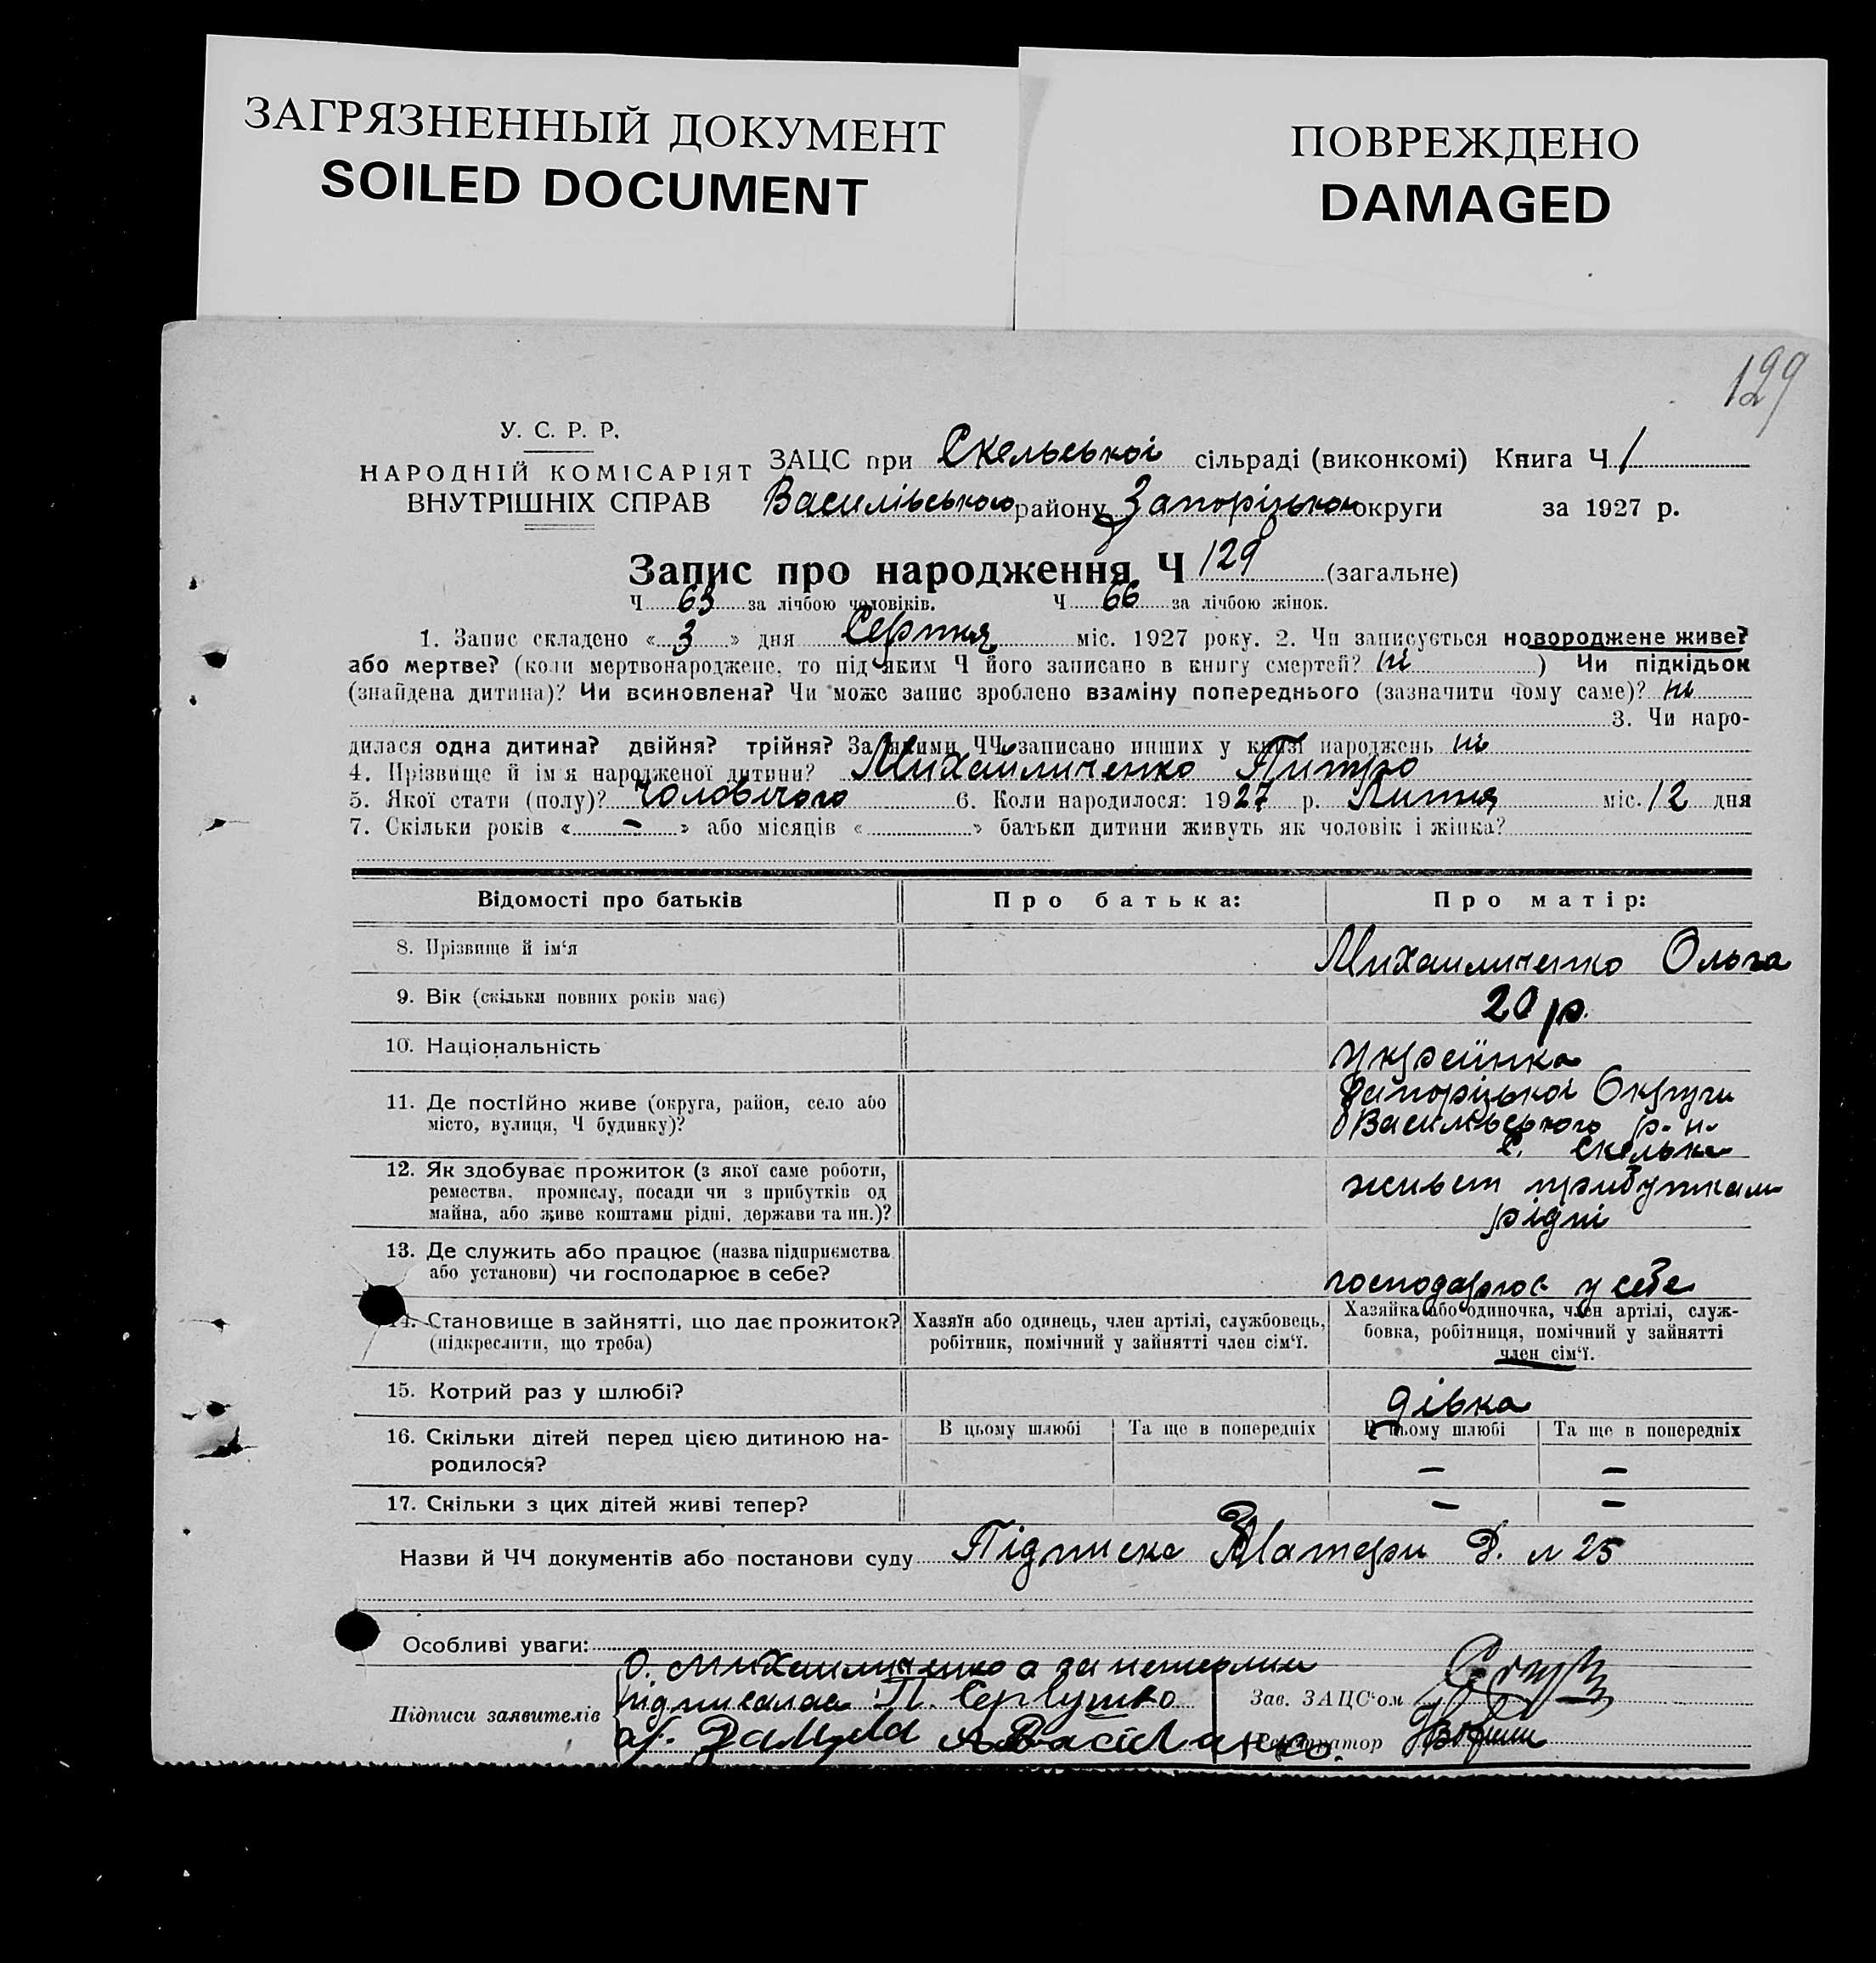 ЗАГРЯЗНЕННЫЙ ДОКУМЕНТ
SOILED DOCUMENT
ПОВРЕЖДЕНО
DAMAGED
129
У. С. Р. Р.
НАРОДНІЙ КОМІСАРІЯТ
ВНУТРІШНІХ СПРАВ
ЗАЦС при Скельської сільраді (виконкомі) Книга Ч 1
Василівського району Запоріцької округи за 1927 р.
Запис про народження Ч 129 (загальне)
Ч 63 за лічбою чоловіків. Ч 66 за лічбою жінок.
1. Запис складено « 3 » дня Серпня міс. 1927 року. 2. Чи записується новороджене живе?
або мертве? (коли мертвонароджене, то під яким Ч його записано в книгу смертей? ні ) Чи підкідьок
(знайдена дитина)? Чи всиновлена? Чи може запис зроблено взаміну попереднього (зазначити чому саме)? ні
3. Чи наро-
дилася одна дитина? двійня? трійня? За якими ЧЧ записано инших у книзі народжень ні
4. Прізвище й ім'я народженої дитини? Михаиличенко Питро
5. Якої стати (полу)? Чоловічого 6. Коли народилося: 1927 р. Липня міс. 12 дня
7. Скільки років « – » або місяців « » батьки дитини живуть як чоловік і жінка?
Відомості про батьків Про батька: Про матір:
8. Прізвище й ім'я Михаиличенко Ольга
9. Вік (скільки повних років має) 20 р.
10. Національність українка
11. Де постійно живе (округа, район, село або місто, вулиця, Ч будинку)?
Запоріцької Округи
Василівського р-н.
с. Скельки
12. Як здобуває прожиток (з якої саме роботи,
ремества, промислу, посади чи з прибутків од
майна, або живе коштами рідні, держави та ин.)?
живет прибутками
рідні
13. Де служить або працює (назва підприємства
або установи) чи господарює в себе?
господарює у себе
14. Становище в зайнятті, що дає прожиток?
(підкреслити, що треба)
Хазяїн або одинець, член артілі, службовець,
робітник, помічний у зайнятті член сім'ї.
Хазяйка або одиночка, член артілі, служ-
бовка, робітниця, помічний у зайнятті
член сім'ї.
15. Котрий раз у шлюбі? дівка
16. Скільки дітей перед цією дитиною на-
родилося?
В цьому шлюбі Та ще в попередніх В цьому шлюбі Та ще в попередніх
– –
17. Скільки з цих дітей живі тепер? – –
Назви й ЧЧ документів або постанови суду Підписка Матери Д. № 25
Особливі уваги:
О. Михаиличенко а за
Підписи заявителів підписалас П.
Зав. ЗАЦС'ом
Реєстратор